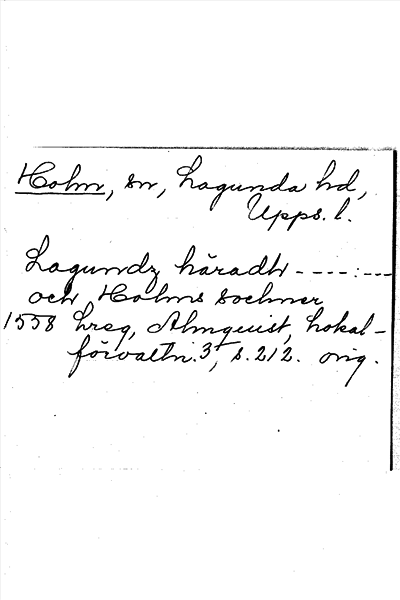 Holm, sn, Lagunda hd,
Upps. l.
Lagundz häradh - - - - : - - -
och Holms sochner
1558 hreg, Almquist, Lokal-
förvaltn. 3, s. 212. orig.